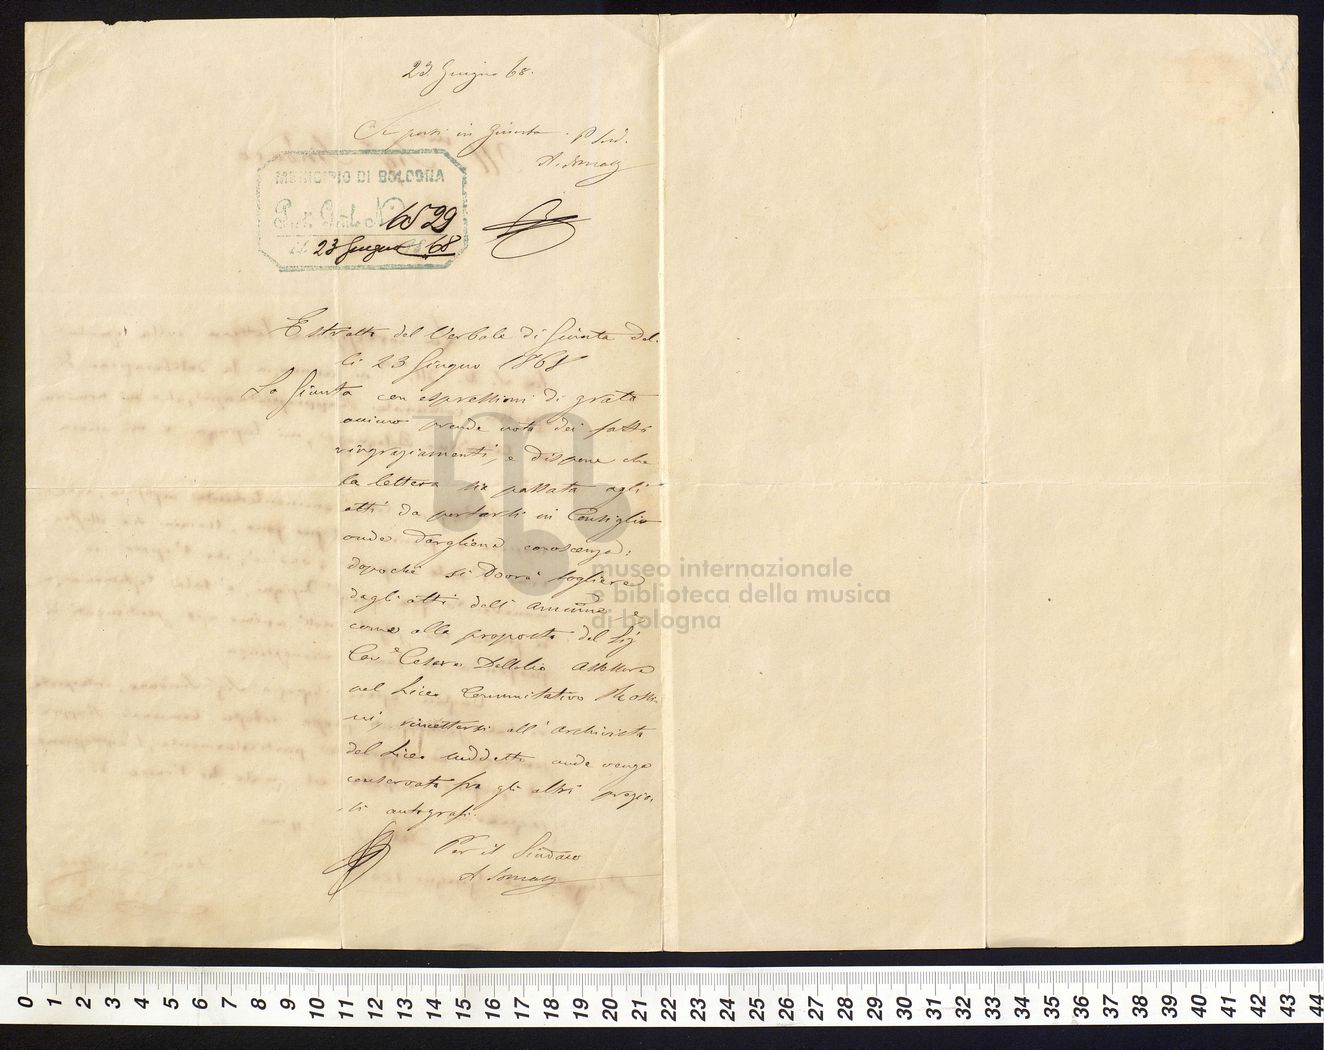 23 Giugno 68.
Si porti in Giunta. P. Sind.
MUNICIPIO DI BOLOGNA
Prot. Gral. N° 6529
23 Giugno 68
Estratto del Verbale di Giunta del
li 23 Giugno 1868
La Giunta con espressioni di grato
animo prende nota dei fatti
ringraziamenti, e dispone che
la lettera sia passata agli
atti da portarsi in Consiglio
onde dargliene conoscenza;
dopoche si dovrà togliere
dagli atti dell'
come alla proposta del Sig
Cav.e Cesare Dallolio Assessore
nel Liceo Comunitativo Rossi
ni, rimettersi all'archivista
del Liceo suddetto onde venga
conservata fra gli altri prezio
si autografi.
Per il Sindaco
museo internazionale
e biblioteca della musica
di bologna
0 1 2 3 4 5 6 7 8 9 10 11 12 13 14 15 16 17 18 19 20 21 22 23 24 25 26 27 28 29 30 31 32 33 34 35 36 37 38 39 40 41 42 43 44